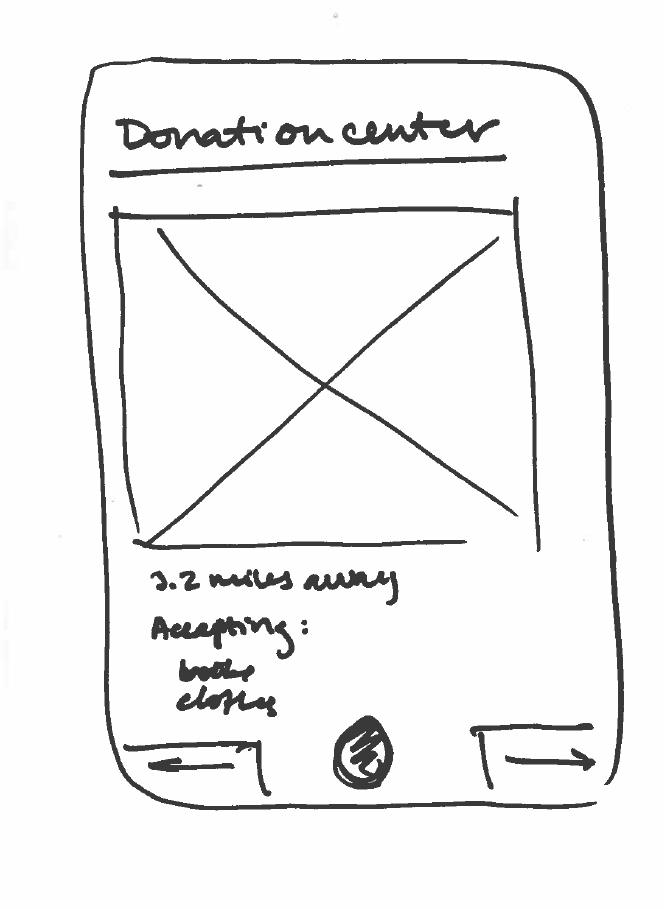 Donation center
3.2 miles away
Accepting:
books
clothes